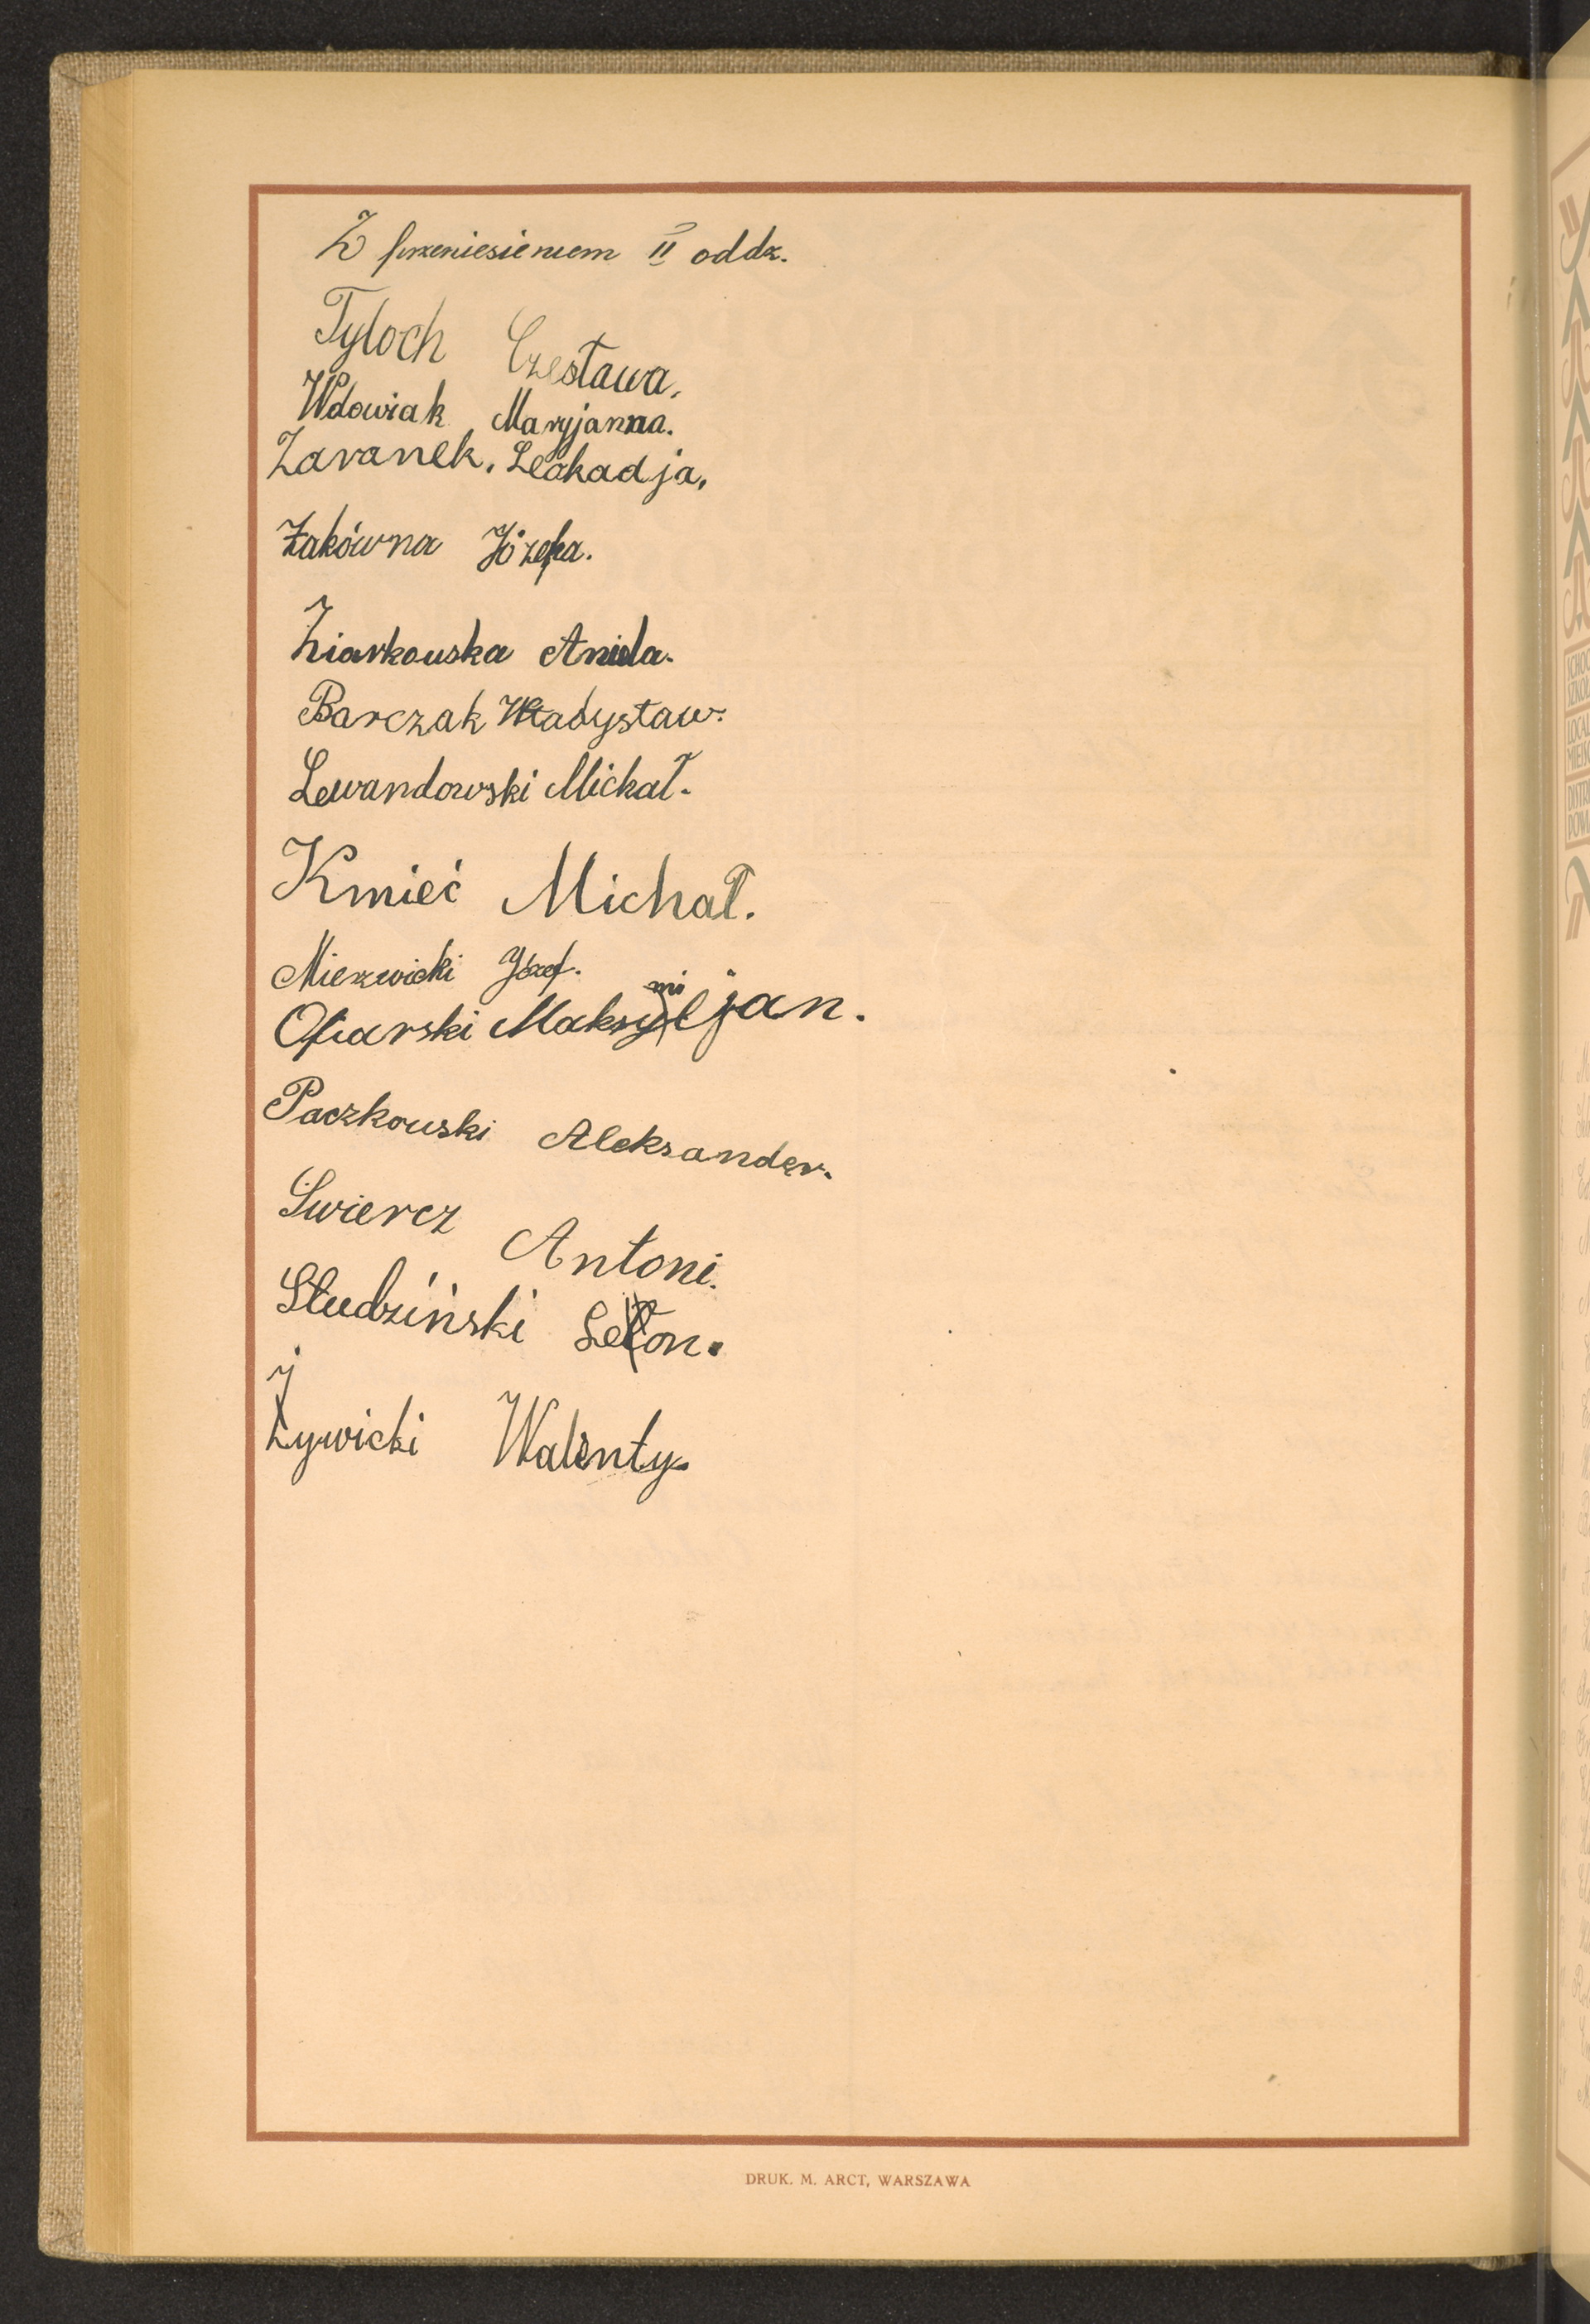 Z przeniesieniem II oddz.
Tyloch Czesława.
Wdowiak Maryjanna.
Zaranek. Leokadja.
Żakówna Józefa.
Ziarkowska Aniela.
Barczak Władysław.
Lewandowski Michał.
Kmieć Michał.
Mierzwicki Józef.
Ofiarski Maksymiljan.
Paczkowski Aleksander.
Swiercz Antoni.
Studziński Leon.
Żywicki Walenty.
DRUK. M. ARCT, WARSZAWA